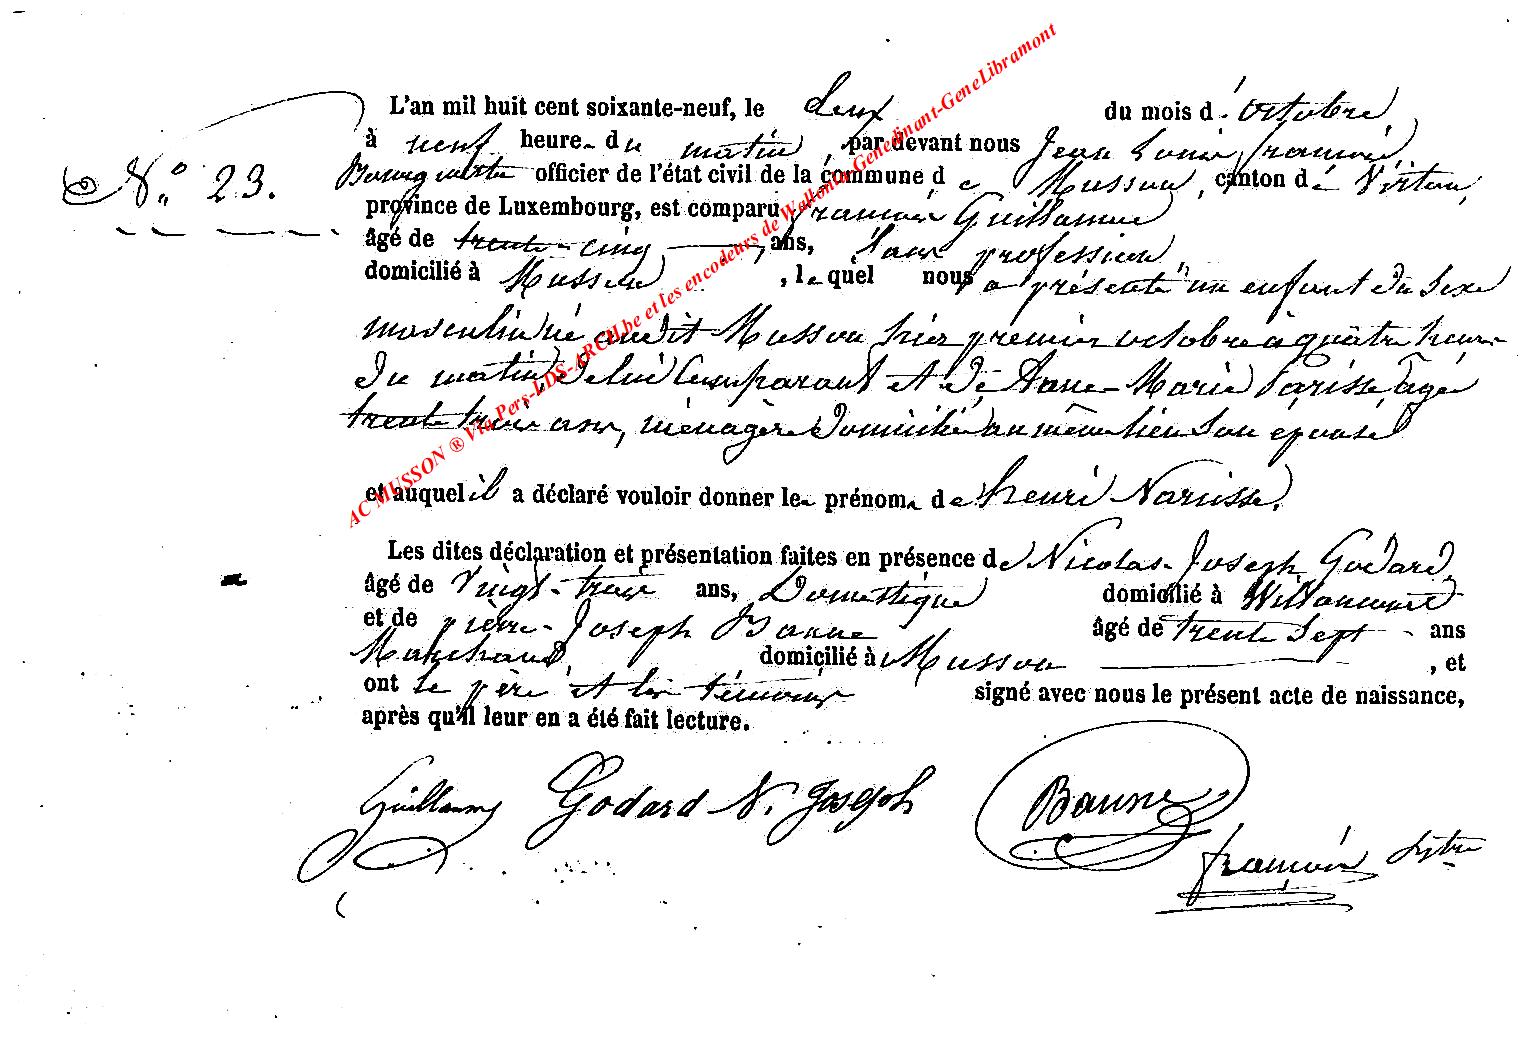 L'an mil huit cent soixante-neuf, le deux du mois d'octobre,
à neuf heure du matin, par devant nous Jean Louis François,
N.° 23.
Bourgmestre officier de l'état civil de la commune de Musson, canton de Virton,
province de Luxembourg, est comparu François Guillaume
âgé de trente-cinq ans, sans profession,
domicilié à Musson, lequel nous a présenté un enfant du sexe
masculin né audit Musson hier premier octobre à quatre heures
du matin, de lui Comparant et de Anne-Marie Parisse, âgée
trente trois ans, ménagère domiciliée au même lieu son épouse
et auquel il a déclaré vouloir donner les prénoms de henri Narcisse.
Les dites déclaration et présentation faites en présence de Nicolas-Joseph Godard,
âgé de Vingt-trois ans, Domestique domicilié à Willancourt
et de pierre-Joseph Bonne âgé de trente sept ans
Marchand, domicilié à Musson, et
ont le père et les témoins signé avec nous le présent acte de naissance,
après qu'il leur en a été fait lecture.
Guillaume Godard N. Joseph
françois
AC MUSSON ® Via Pers-LDS-ARCH.be et les encodeurs de Wallonia-Genedinant-GeneLibramont